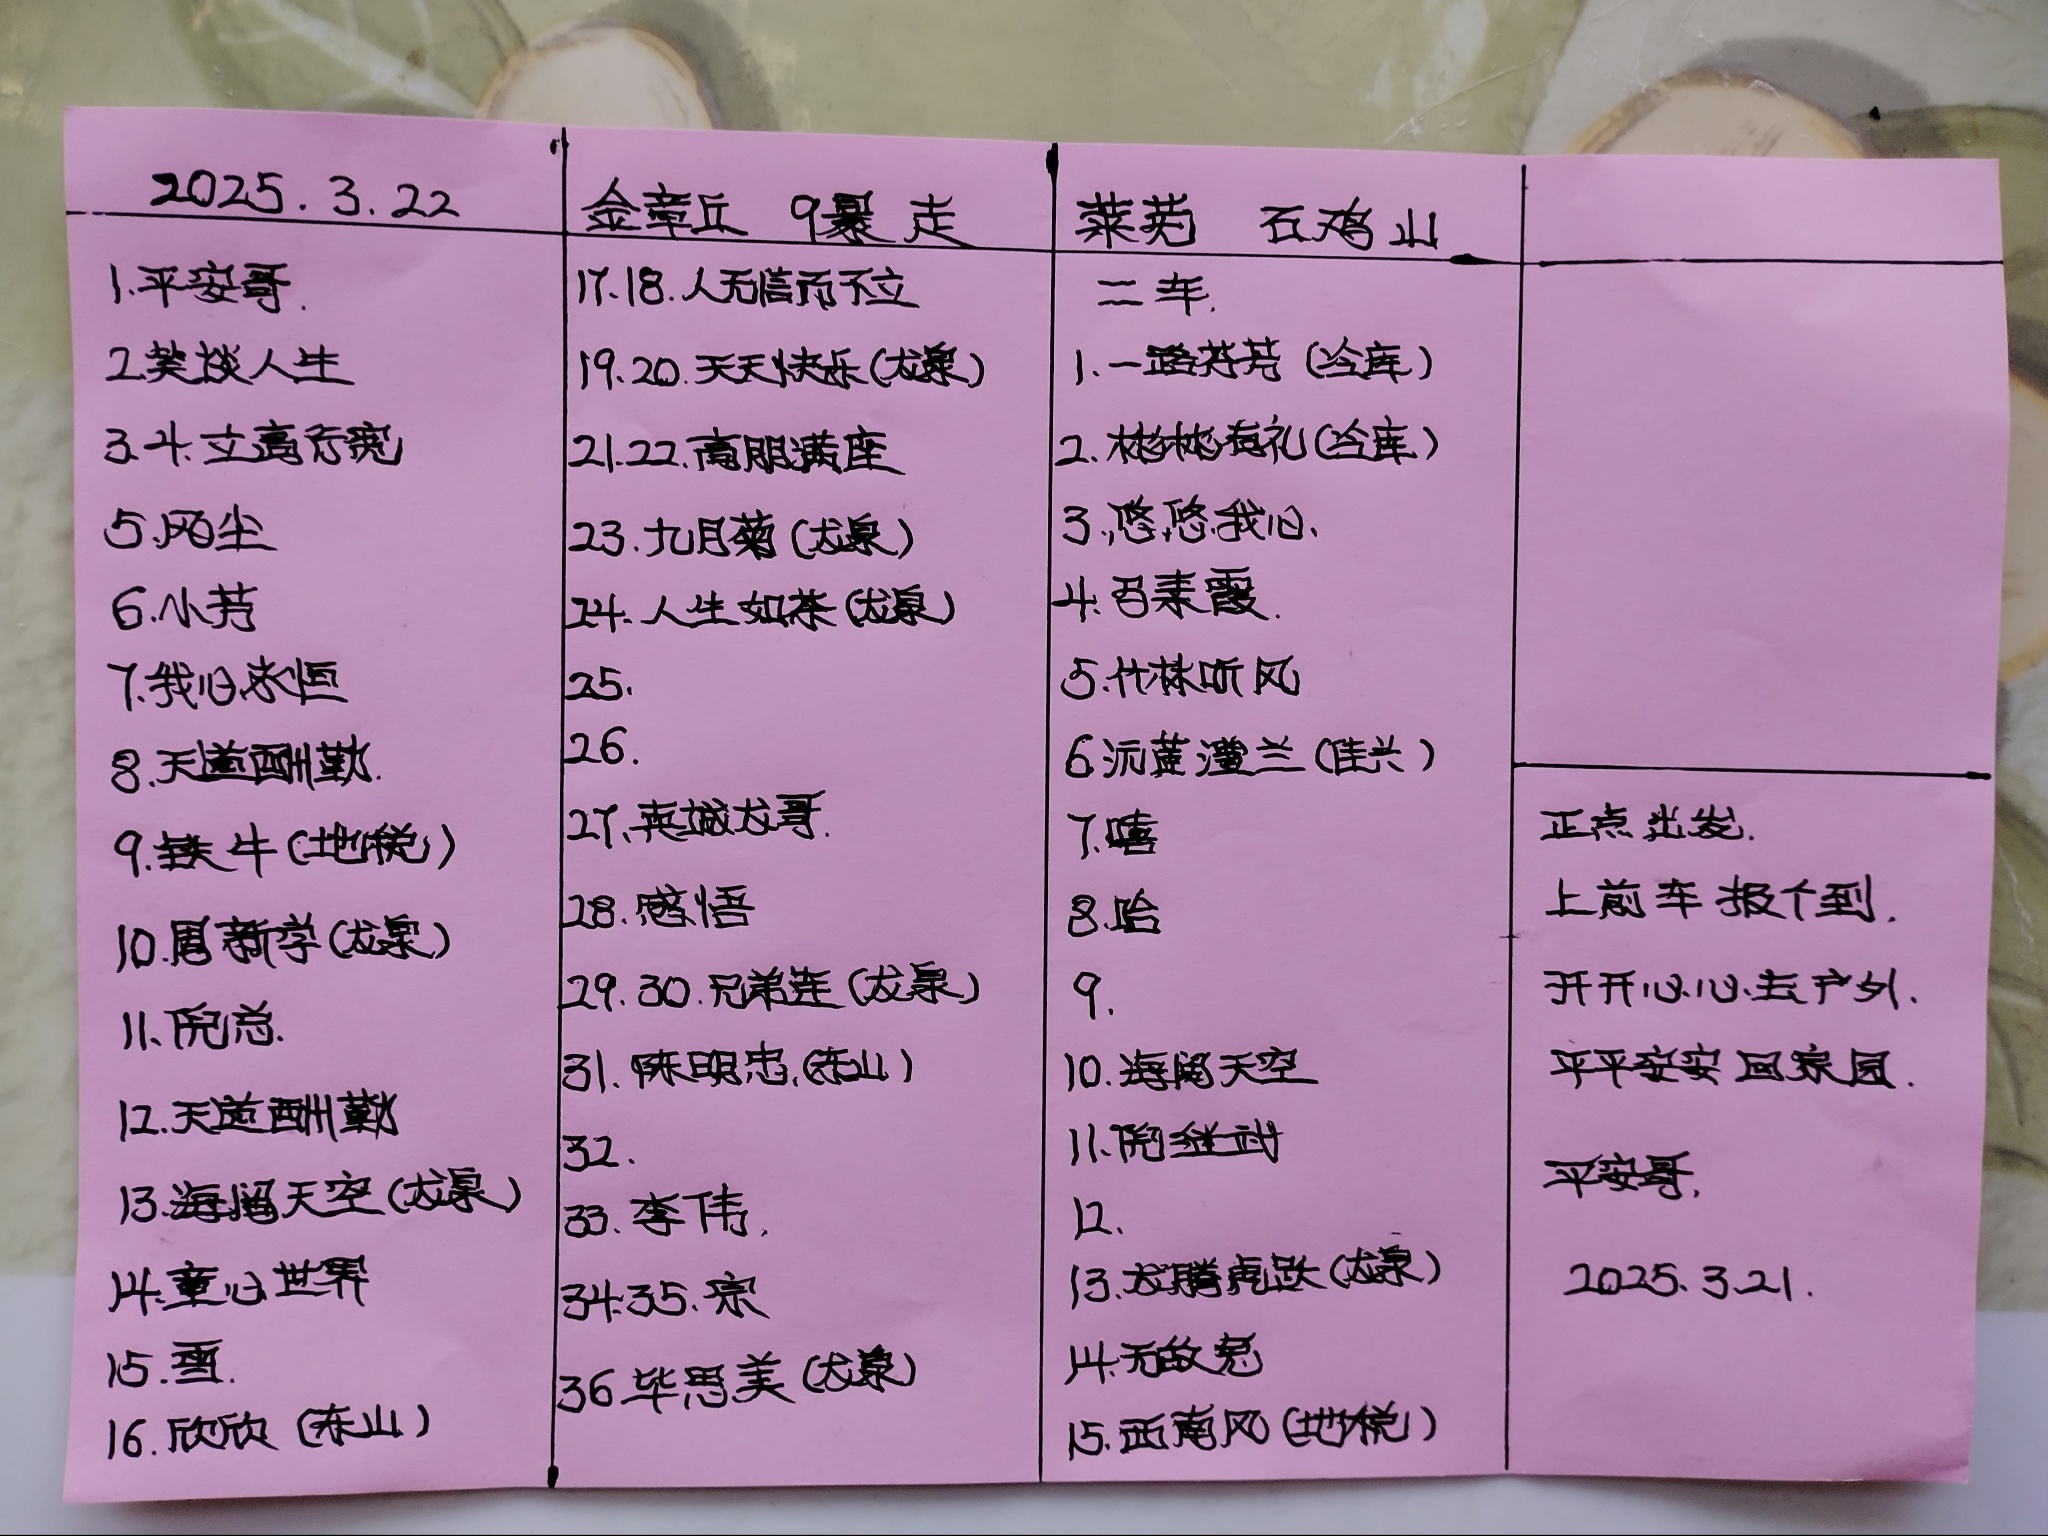 2025.3.22
1.平安哥.
2.笑谈人生
3.4.立高行宽
5.风尘
6.小芳
7.我心永恒
8.天道酬勤.
9.铁牛(地税)
10.周新学(龙泉)
11.倪总.
12.天道酬勤
13.海阔天空(龙泉)
14.童心世界
15.雪.
16.欣欣(东山)
金章丘 9暴走
17.18.人无信而不立
19.20.天天快乐(龙泉)
21.22.高朋满座
23.九月菊(龙泉)
24.人生如茶(龙泉)
25.
26.
27.英城龙哥.
28.感悟
29.30.兄弟连(龙泉)
31.陈明忠.(东山)
32.
33.李伟.
34.35.宗
36.毕思美(龙泉)
莱芜 石鸡山
二车.
1.一路芬芳(冷库)
2.彬彬有礼(冷库)
3.悠悠我心.
4.吕素霞.
5.竹林听风
6.沅芷澧兰(佳兴)
7.嘻
8.哈
9.
10.海阔天空
11.倪继武
12.
13.龙腾虎跃(龙泉)
14.无敌
15.西南风(地税)
正点出发.
上前车报个到.
开开心心去户外.
平平安安回家园.
平安哥.
2025.3.21.